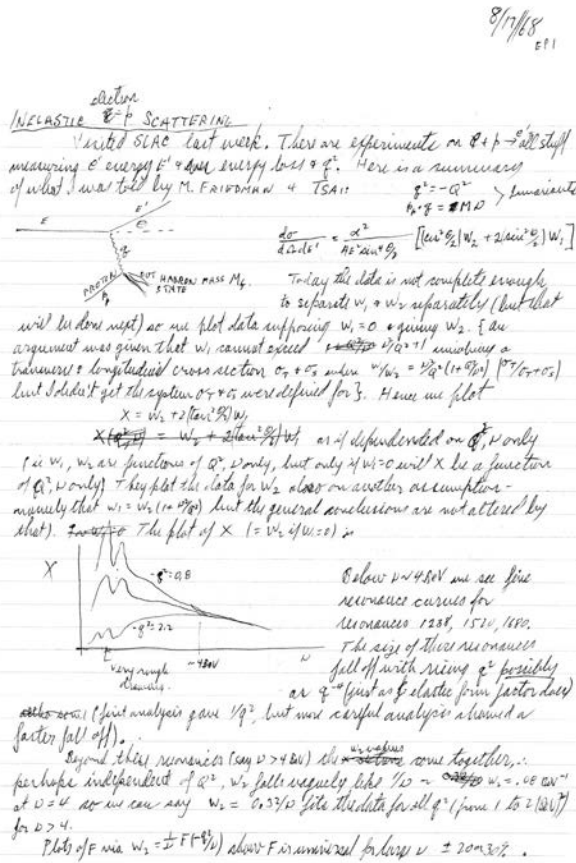 8/17/68
EP1
electron
INELASTIC e-p SCATTERING
Visited SLAC last week. There are experiments on e+p → e'+ all stuff
measuring e' energy E' & energy loss & q². Here is a summary
of what I was told by M. FRIEDMAN & TSAI:
q² = -Q²
p·q = MD > Invariants
E
E'
θ
q
PROTON
p
OUT HADRON MASS M
STATE
dσ/dΩdE' = α²/4E²sin⁴θ/2 [(cos²θ/2)W₂ + 2(sin²θ/2)W₁]
Today the data is not complete enough
to separate W₁ & W₂ separately (but that
will be done next) so we plot data supposing W₁=0 & giving W₂. { an
argument was given that W₁ cannot exceed involving a
transverse & longitudinal cross section σT & σS where
but I didn't get the system σT & σS were defined for}. Hence we plot
X = W₂ + 2(tan²θ/2)W₁
= W₂ + 2(tan²θ/2)W₁ as if depended on Q², ν only
(ie W₁, W₂ are functions of Q², ν only, but only if W₁=0 will X be a function
of Q², ν only) They plot the data for W₂ also on another assumption-
namely that W₁ = W₂(1+ ) but the general conclusions are not altered by
that). The plot of X (= W₂ if W₁=0) is
X
-q²=0.8
-q²=2.2
very rough
drawing.
~4BeV
ν
Below ν~4BeV we see fine
resonance curves for
resonances 1238, 1520, 1680.
The size of these resonances
fall off with rising q² possibly
as q⁻⁴ (just as elastic form factor does)
(first analysis gave 1/q², but more careful analysis showed a
faster fall off).
Beyond these resonances (say ν>4BeV) the W₂ values come together,
perhaps independent of Q², W₂ falls vaguely like 1/ν ~ W₂ = .08 BeV⁻¹
at ν=4 so we can say W₂ = 0.32/ν fits the data for all q² (from 1 to 2(BeV)²)
for ν>4.
Plots of F via W₂ = 1/ν F(-q²/ν) show F is universal for large ν ± 20 or 30%.